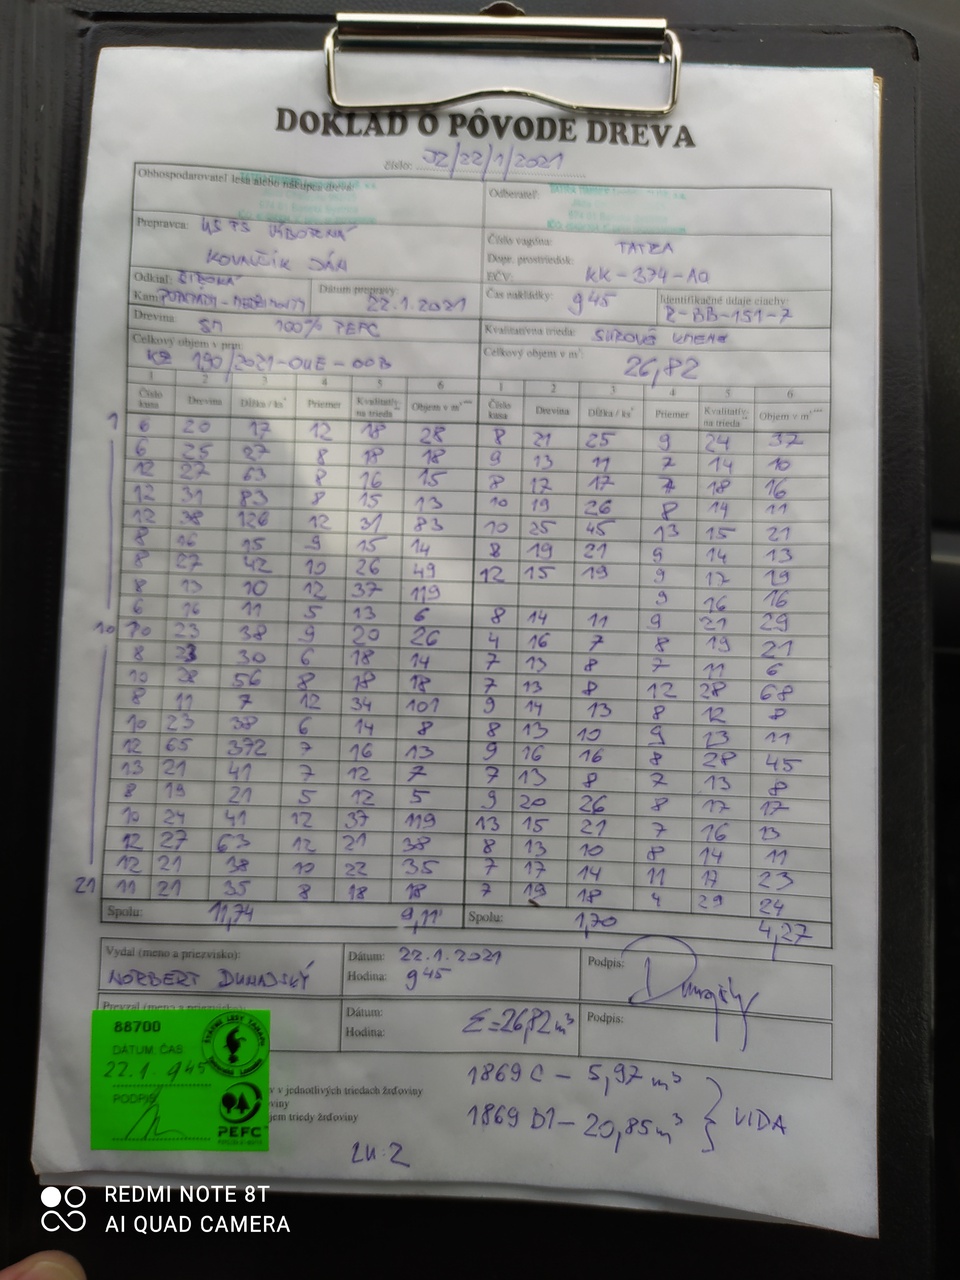 DOKLAD O PÔVODE DREVA
číslo: JZ/22/1/2021
Obhospodarovateľ lesa alebo nákupca dreva:
Odberateľ:
Prepravca:
KOVALČÍK JÁN
Číslo vagóna: TATRA
Dopr. prostriedok:
EČV: KK-374-AQ
Odkiaľ:
Kam:
Dátum prepravy: 22.1.2021
Čas nakládky: 9 45
Identifikačné údaje ciachy: R-BB-151-7
Drevina: SM 100% PEFC
Kvalitatívna trieda: SUROVÉ KMENE
Celkový objem v prm:
190/2021-OUE-OOB
Celkový objem v m³: 26,82
1 2 3 4 5 6 1 2 3 4 5 6
Číslo kusa Drevina Dĺžka / ks* Priemer Kvalitatív- na trieda** Objem v m³*** Číslo kusa Drevina Dĺžka / ks* Priemer Kvalitatív- na trieda** Objem v m³***
1 6 20 17 12 18 28 8 21 25 9 24 37
6 25 27 8 18 18 9 13 11 7 14 10
12 27 63 8 16 15 8 17 17 7 18 16
12 31 83 8 15 13 10 19 26 8 14 11
12 38 126 12 31 83 10 25 45 13 15 21
8 16 15 9 15 14 8 19 21 9 14 13
8 27 42 10 26 49 12 15 19 9 17 19
8 13 10 12 37 119 9 16 16
6 16 11 5 13 6 8 14 11 9 21 29
10 10 23 38 9 20 26 4 16 7 8 19 21
8 23 30 6 18 14 7 13 8 7 11 6
10 28 56 8 18 18 7 13 8 12 28 68
8 11 7 12 34 101 9 14 13 8 12 8
10 23 38 6 14 8 8 13 10 9 13 11
12 65 372 7 16 13 9 16 16 8 28 45
13 21 41 7 12 7 7 13 8 7 13 8
8 19 21 5 12 5 9 20 26 8 17 17
10 24 41 12 37 119 13 15 21 7 16 13
12 27 63 12 21 38 8 13 10 8 14 11
12 21 38 10 22 35 7 17 14 11 17 23
21 11 21 35 8 18 18 7 19 18 4 29 24
Spolu: 11,74 9,11 Spolu: 1,70 4,27
Vydal (meno a priezvisko):
NORBERT
Dátum: 22.1.2021
Hodina: 9 45
Podpis:
Prevzal (meno a priezvisko):
Dátum:
Hodina:
Σ=26,82 m³
Podpis:
88700
DÁTUM ČAS
22.1. 9 45
PODPIS
PEFC
v v jednotlivých triedach žrďoviny
viny
jem triedy žrďoviny
1869 C - 5,97 m³
1869 D1 - 20,85 m³
VIDA
ZK:2
REDMI NOTE 8T
AI QUAD CAMERA